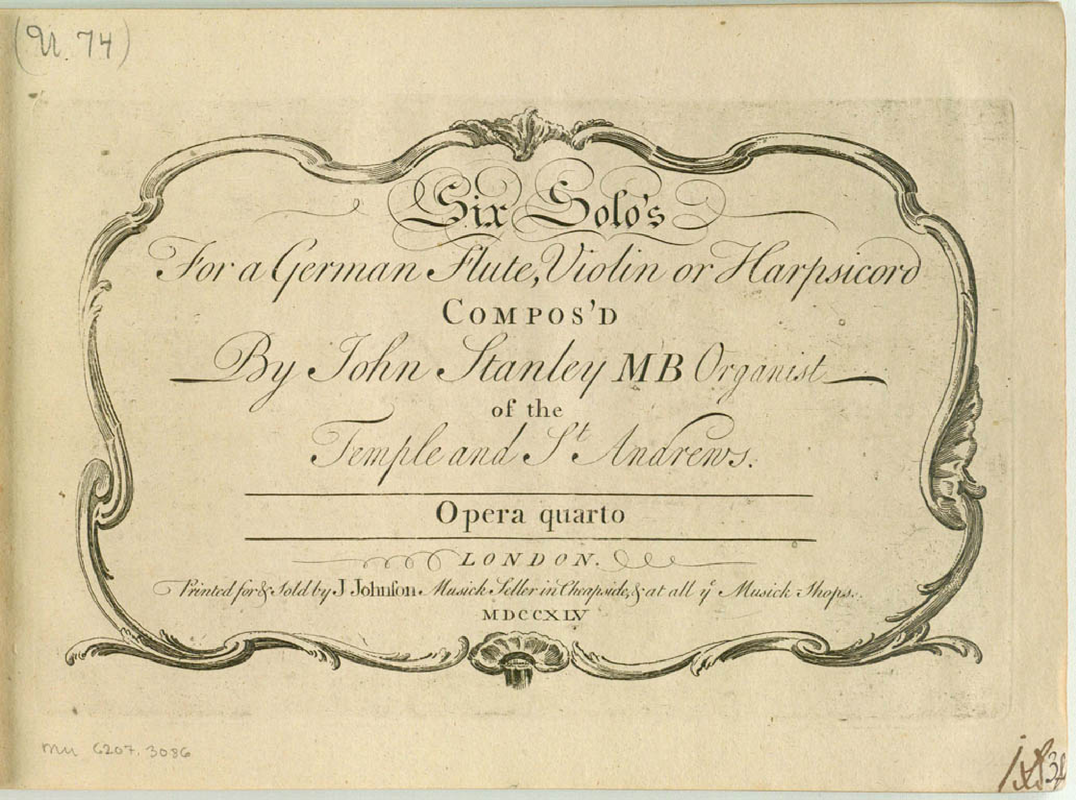 (U. 74)
Six Solo's
For a German Flute, Violin or Harpsicord
COMPOS'D
By John Stanley MB Organist
of the
Temple and St Andrews.
Opera quarto
LONDON.
Printed for & Sold by J Johnson Musick Seller in Cheapside, & at all ye Musick Shops.
MDCCXLV
mu 6207.3086